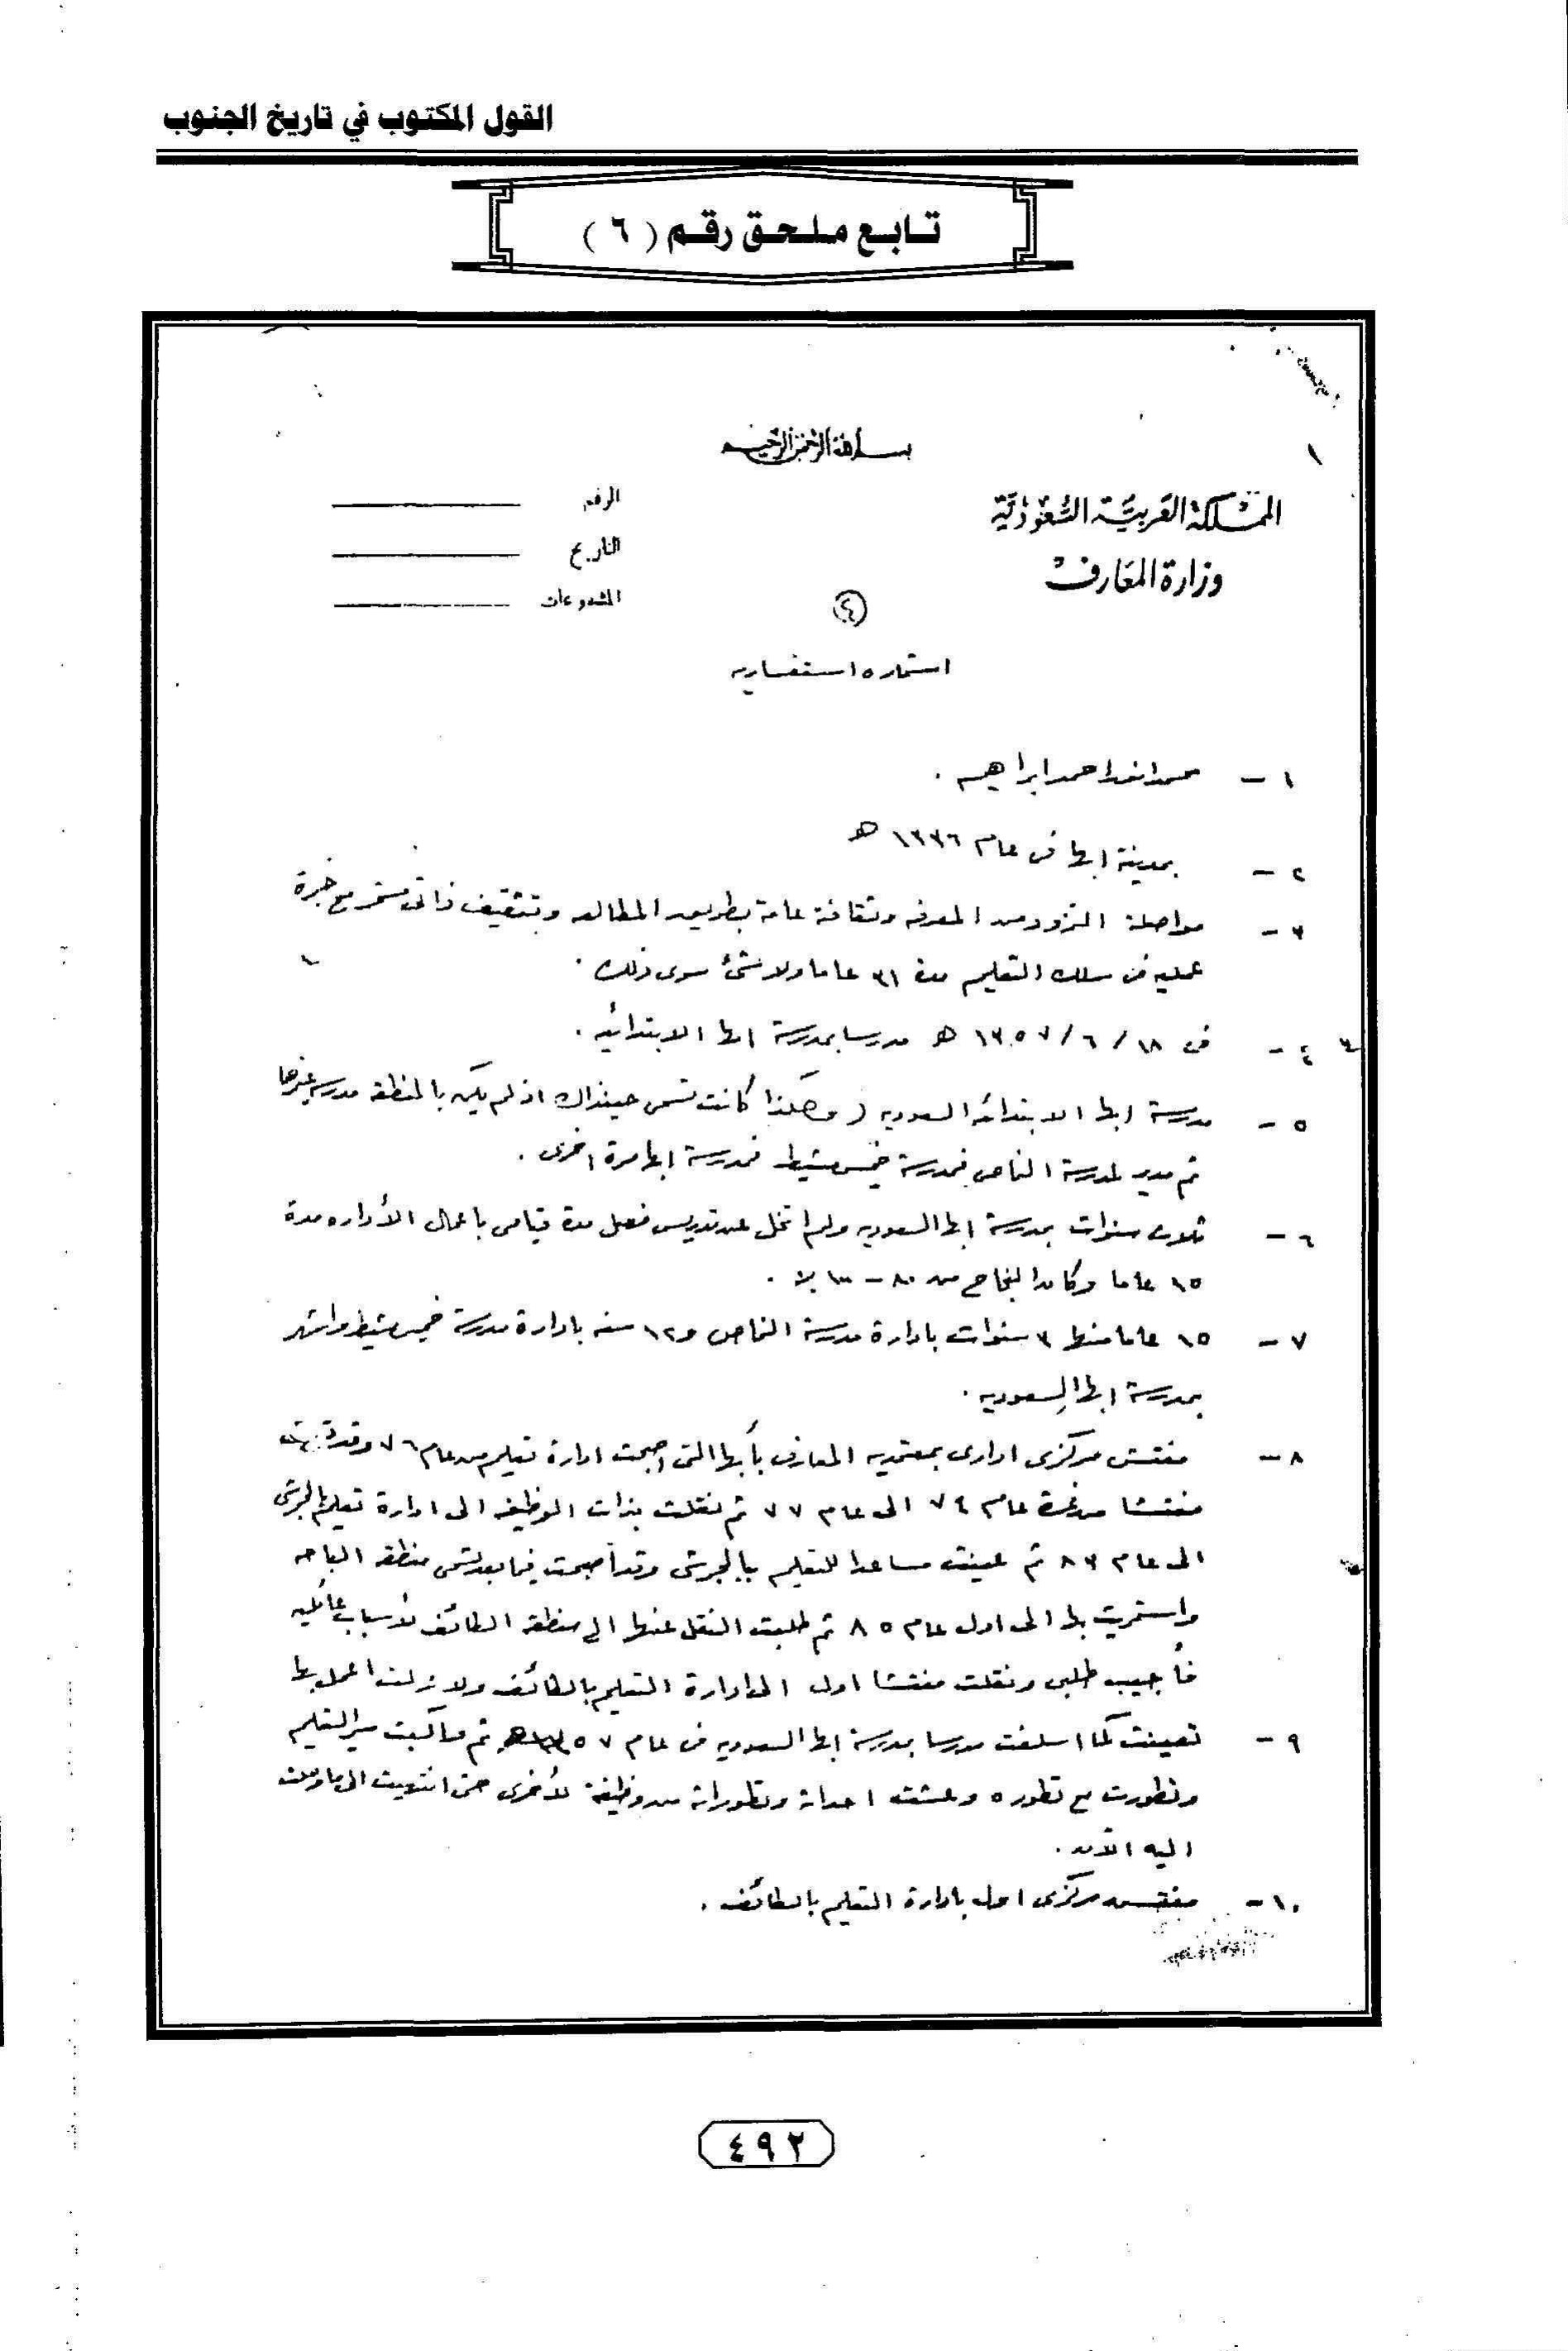 القول المكتوب في تاريخ الجنوب
تابع ملحق رقم (٦)
بسم الله الرحمن الرحيم
١
المملكة العربية السعودية
وزارة المعارف
الرقم
التاريخ
المشفوعات
٤
استماره استفساريه
١ - احمد ابراهيم .
٢ - بمدينة ابها فى عام ١٣٣٦ هـ
٣ - مواصلة التزود من المعرفه وثقافة عامة بطريق المطالعه وبتثقيف ذاتى مستمر مع خبرة
عمليه فى سلك التعليم مدة ٣١ عاما ولا شئ سوى ذلك .
٤ - فى ١٨ / ٦ / ١٣٥٧ هـ مدرسا بمدرسة ابها الابتدائيه .
٥ - مدرسة ابها الابتدائيه السعوديه ( وهكذا كانت تسمى حينذاك اذ لم يكن بالمنطقه مدرسه غيرها
ثم مدير لمدرسة النماص فمدرسة خميس مشيط فمدرسة ابها مرة اخرى .
٦ - ثلاث سنوات بمدرسة ابها السعوديه ولم اتخل عن تدريس فصل مدة قيامى باعمال الأداره مدة
١٥ عاما وكان النجاح من ٨٠ - ١٠٠ ٪ .
٧ - ١٥ عاما منها ٣ سنوات بادارة مدرسة النماص و١٢ سنه بادارة مدرسة خميس مشيط واشهر
بمدرسة ابها السعوديه .
٨ - مفتش مركزى ادارى بمعتمديه المعارف بأبها التى اصبحت ادارة تعليم من عام ٧٦ وقد
مفتشا من غرة عام ٧٤ الى عام ٧٧ ثم نقلت بذات الوظيفه الى ادارة تعليم بالجرشى
الى عام ٨٣ ثم عينت مساعدا للتعليم ببالجرشى وقد أصبحت فيما بعد تسمى منطقه الباحه
واستمريت بها الى اول عام ٨٥ ثم طلبت النقل عنها الى منطقه الطائف لأسباب عائليه
فأجيب طلبى ونقلت مفتشا اول الى ادارة التعليم بالطائف ولا زلت اعمل بها
٩ - تعينت كما اسلفت مدرسا بمدرسة ابها السعوديه فى عام ١٣٥٧هـ ثم واكبت سير التعليم
وتطورت مع تطوره وعشت احداثه وتطوراته من وظيفة لأخرى حتى انتهيت الى ما وصلت
اليه الآن .
١٠ - مفتش مركزى اول بادارة التعليم بالطائف .
٤٩٢